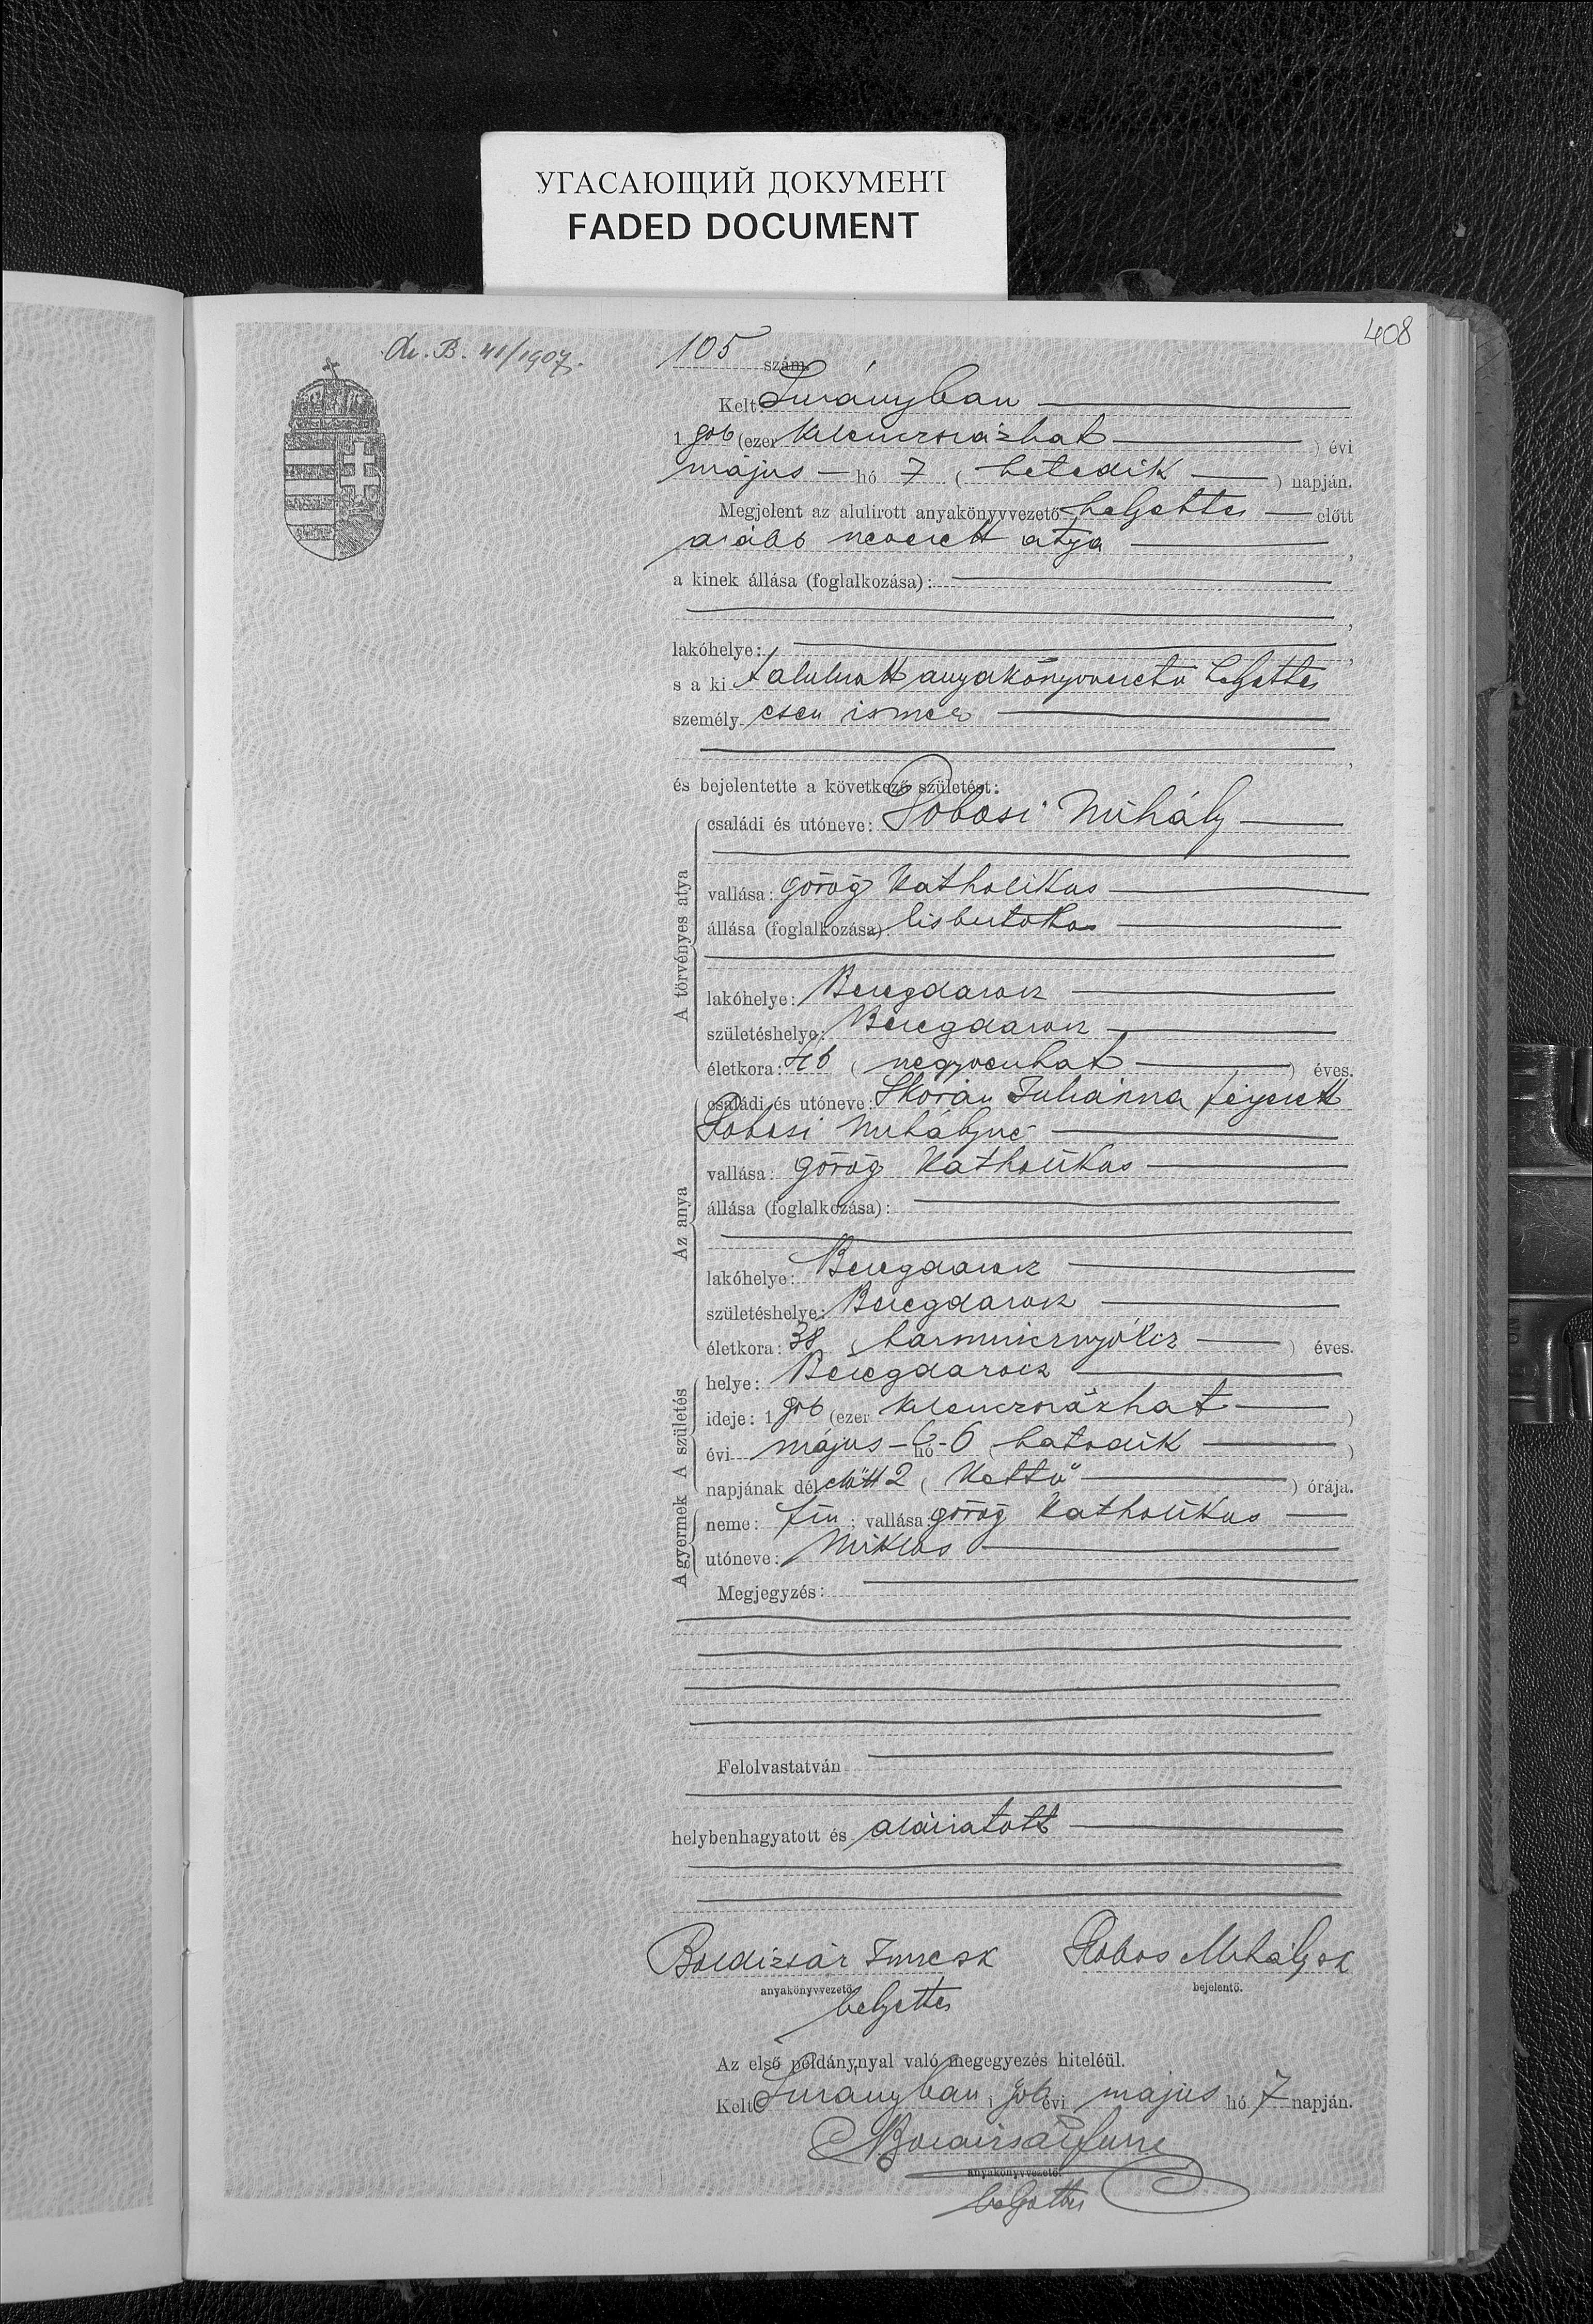 УГАСАЮЩИЙ ДОКУМЕНТ
FADED DOCUMENT
408
B. 41/1907.
105 szám.
Kelt Surányban
1906 (ezer kilenczszázhat) évi
május hó 7 (hetedik) napján.
Megjelent az alulírott anyakönyvvezető helyettes előtt
alább nevezett atyja,
a kinek állása (foglalkozása):
lakóhelye:
s a kit alulirott anyakönyvvezető helyettes
személyesen ismer
és bejelentette a következő születést:
A törvényes atya
családi és utóneve: Mihály
vallása: görög katholikus
állása (foglalkozása): kisbirtokos
lakóhelye: Beregdarócz
születéshelye: Beregdarócz
életkora: 46 (negyvenhat) éves.
Az anya
családi és utóneve: Skorán Juliánna férjezett
Mihályné
vallása: görög katholikus
állása (foglalkozása):
lakóhelye: Beregdarócz
születéshelye: Beregdarócz
életkora: 38 (harmincznyólcz) éves.
A születés
helye: Beregdarócz
ideje: 1906 (ezer kilenczszázhat)
évi május hó 6 (hatodik)
napjának délelőtt 2 (kettő) órája.
A gyermek
neme: fiu; vallása: görög katholikus
utóneve: Miklós
Megjegyzés:
Felolvastatván
helybenhagyatott és aláiratott
Boldizsár Imre sk
anyakönyvvezető
helyettes
Mihály sk
bejelentő.
Az első példánynyal való megegyezés hiteléül.
Kelt Surányban, 1906 évi május hó 7 napján.
Boldizsár Imre
anyakönyvvezető.
helyettes